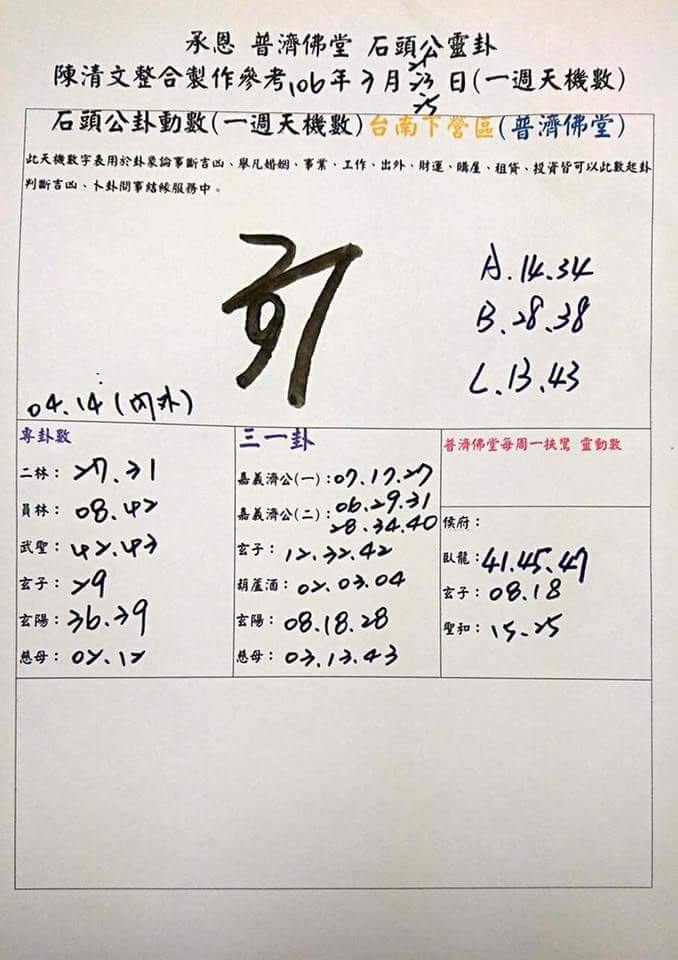 承恩 普濟佛堂 石頭公靈卦
陳清文整合製作參考106年3月21 23 25日(一週天機數)
石頭公卦動數(一週天機數)台南下營區(普濟佛堂)
此天機數字表用於卦象論事斷吉凶、舉凡婚姻、事業、工作、出外、財運、購屋、租賃、投資皆可以此數起卦
判斷吉凶、卜卦問事結緣服務中。
A.14.34
B.28.38
C.13.43
04.14(內外)
專卦數
二林：27.31
員林：08.42
武聖：42.43
玄子：29
玄陽：36.39
慈母：02.12
三一卦
嘉義濟公(一)：07.17.27
嘉義濟公(二)：06.29.31
28.34.40
玄子：12.32.42
葫蘆酒：02.03.04
玄陽：08.18.28
慈母：03.13.43
普濟佛堂每周一扶鸞 靈動數
侯府：
臥龍：41.45.47
玄子：08.18
聖和：15.25